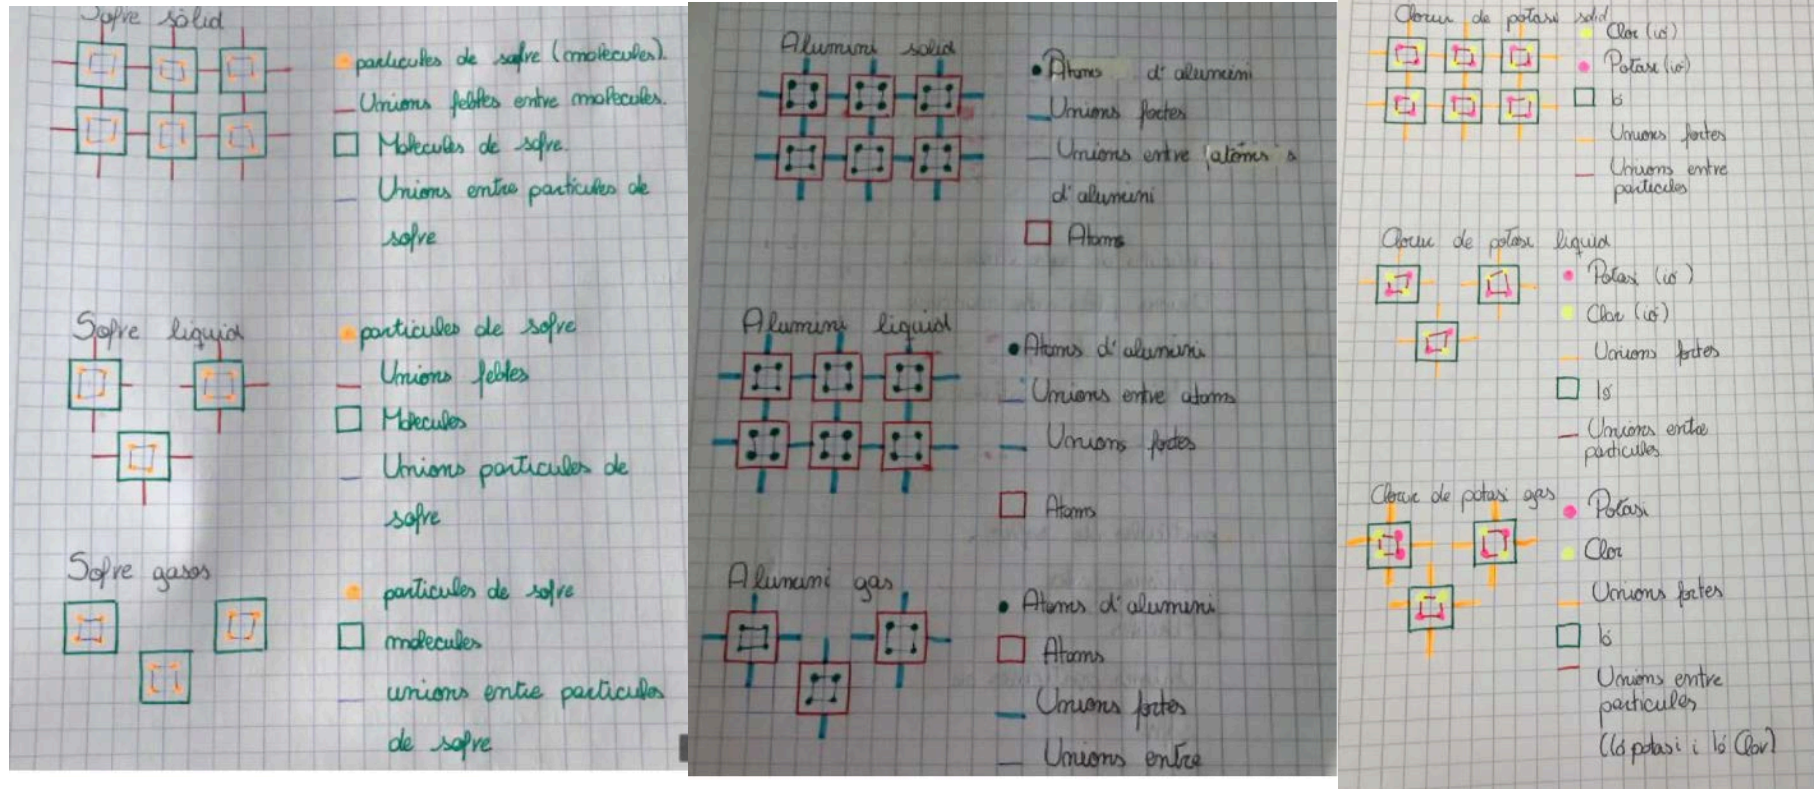 Sofre sòlid
particules de sofre (molècules).
Unions febles entre molècules.
Molècules de sofre.
Unions entre particules de
sofre
Sofre liquid
particules de sofre
Unions febles
Molècules
Unions particules de
sofre
Sofre gasos
particules de sofre
molècules
unions entre particules
de sofre
Alumini solid
Atoms d'alumini
Unions fortes
Unions entre atoms
d'alumini
Atoms
Alumini liquid
Atoms d'alumini
Unions entre atoms
Unions fortes
Atoms
Alumini gas
Atoms d'alumini
Atoms
Unions fortes
Unions entre
Clorur de potasi solid
Clor (ió)
Potasi (ió)
Ió
Unions fortes
Unions entre
particules
Clorur de potasi liquid
Potasi (ió)
Clor (ió)
Unions fortes
Ió
Unions entre
particules
Clorur de potasi gas
Potasi
Clor
Unions fortes
Ió
Unions entre
particules
(Ió potasi i ió Clor)